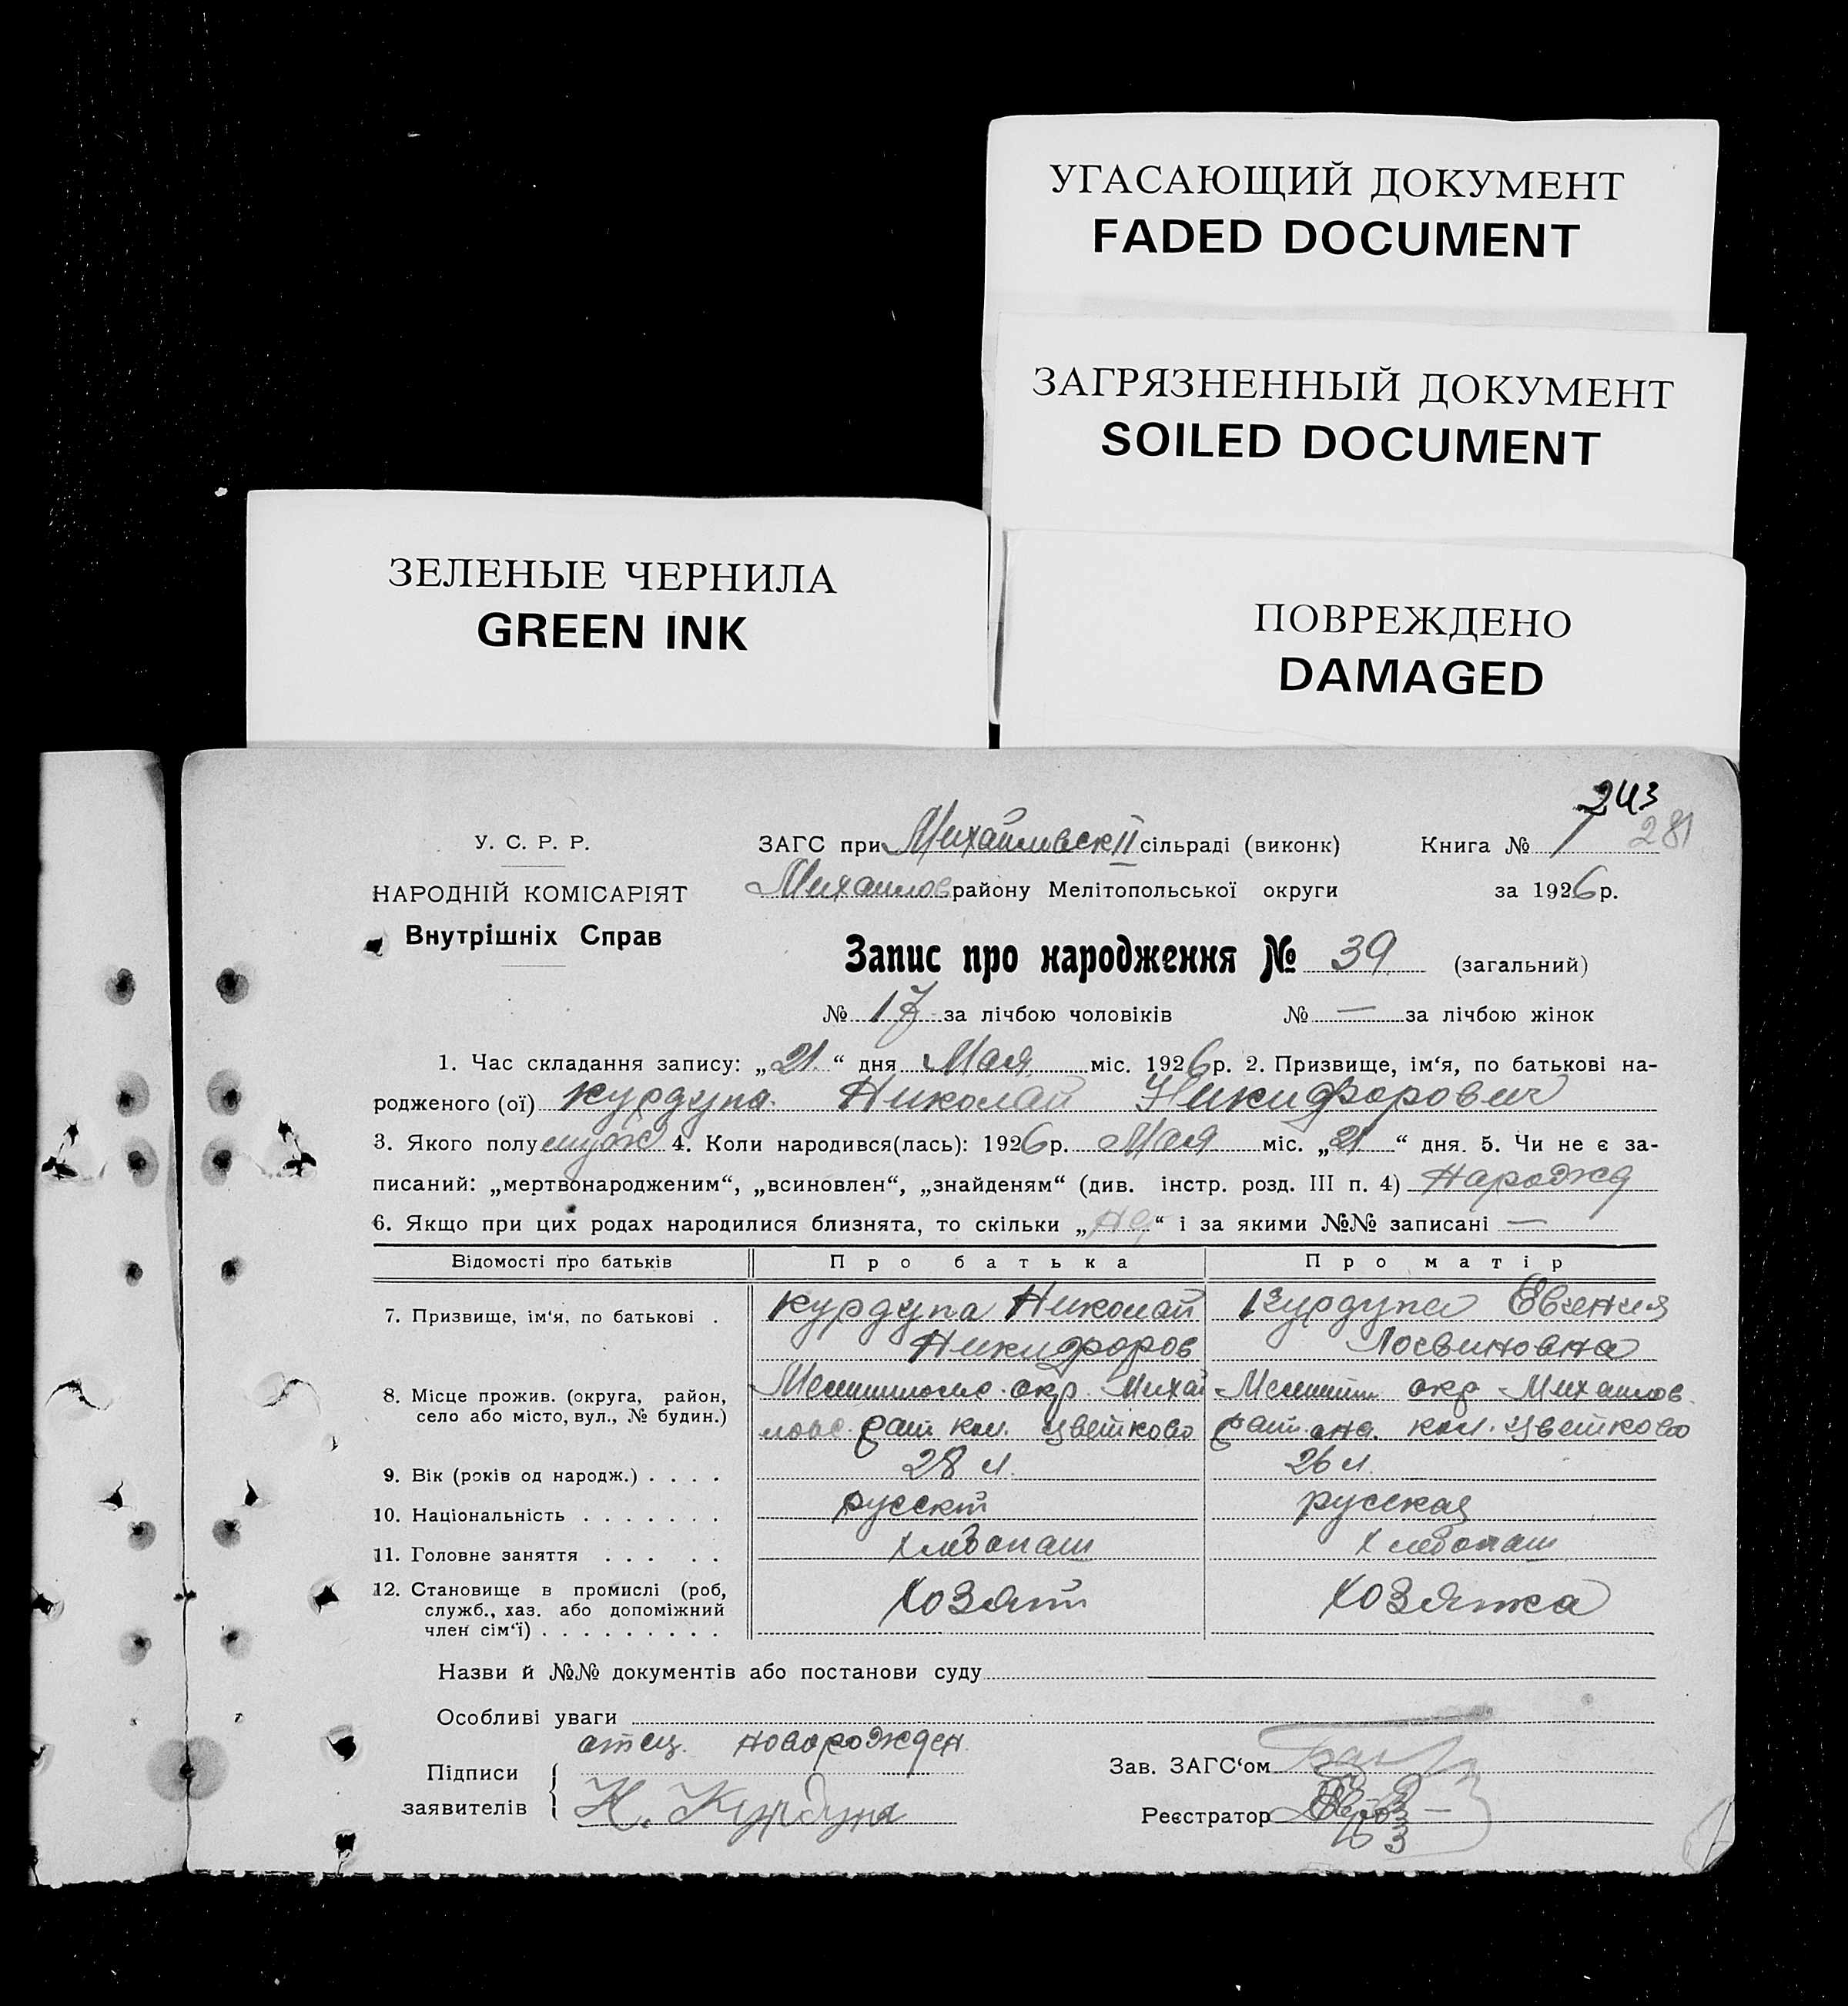 УГАСАЮЩИЙ ДОКУМЕНТ
FADED DOCUMENT
ЗАГРЯЗНЕННЫЙ ДОКУМЕНТ
SOILED DOCUMENT
ЗЕЛЕНЫЕ ЧЕРНИЛА
GREEN INK
ПОВРЕЖДЕНО
DAMAGED
243
281
У. С. Р. Р.
НАРОДНІЙ КОМІСАРІЯТ
Внутрішніх Справ
ЗАГС при Михайловск II сільраді (виконк) Книга № 1
Михайлов району Мелітопольської округи за 1926 р.
Запис про народження № 39 (загальний)
№ 17 за лічбою чоловіків № — за лічбою жінок
1. Час складання запису: „21“ дня Мая міс. 1926 р. 2. Призвище, ім‘я, по батькові на-
родженого (ої) Курдупа Николай Никифорович
3. Якого полу муж 4. Коли народився(лась): 1926 р. Мая міс. „21“ дня. 5. Чи не є за-
писаний: „мертвонародженим“, „всиновлен“, „знайденям“ (див. інстр. розд. III п. 4) Нарожд
6. Якщо при цих родах народилися близнята, то скільки „ “ і за якими №№ записані —
Відомості про батьків Про батька Про матір
7. Призвище, ім‘я, по батькові . Курдупа Николай Курдупа Евгения
Никифоров Логвиновна
8. Місце прожив. (округа, район, село або місто, вул., № будин.) окр. Михай окр Михайлов
ловс. кол. Цветково кол. Цветково
9. Вік (років од народж.) . . . . 28 л. 26 л.
10. Національність . . . . . . . русский русская
11. Головне заняття . . . . . Хлебопаш Хлебопаш
12. Становище в промислі (роб, служб., хаз. або допоміжний член сім‘ї) . . . . . . . . . Хозяин Хозяйка
Назви й №№ документів або постанови суду
Особливі уваги
отец новорожден
Підписи заявителів Н. Курдупа
Зав. ЗАГС‘ом
Реєстратор